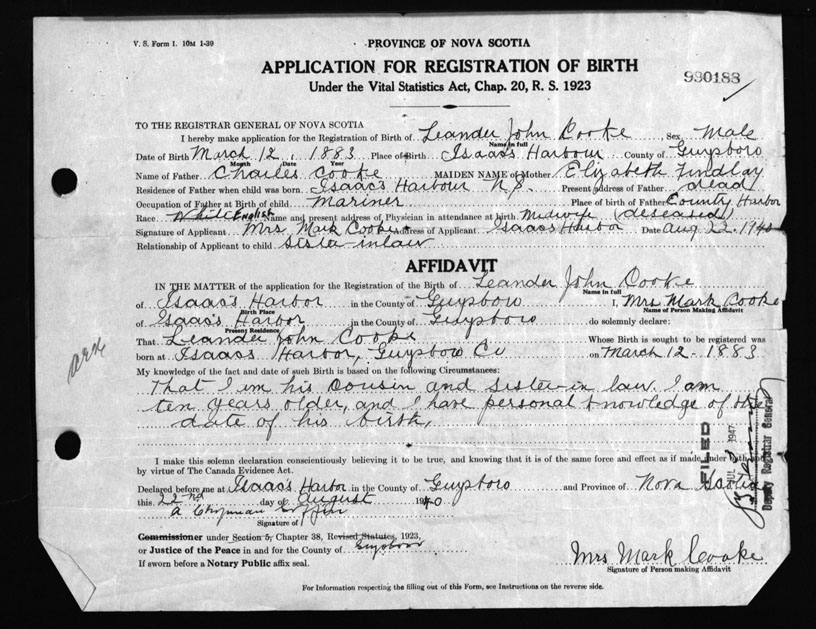 V. S. Form 1. 10M 1-39
PROVINCE OF NOVA SCOTIA
APPLICATION FOR REGISTRATION OF BIRTH
Under the Vital Statistics Act, Chap. 20, R. S. 1923
990188
TO THE REGISTRAR GENERAL OF NOVA SCOTIA
I hereby make application for the Registration of Birth of Leander John Cooke, Sex Male
Name in full
Date of Birth March 12, 1883 Place of Birth Isaac's Harbour County of Guysboro
Month Date Year
Name of Father Charles Cooke MAIDEN NAME of Mother Elizabeth Findlay
Residence of Father when child was born Isaac's Harbour N.S. Present address of Father dead
Occupation of Father at Birth of child Mariner Place of birth of Father County Harbor
Race White English Name and present address of Physician in attendance at birth Midwife (deseased)
Signature of Applicant Mrs Mark Cooke Address of Applicant Isaacs Harbor Date Aug 22. 1940
Relationship of Applicant to child Sister-inlaw
AFFIDAVIT
IN THE MATTER of the application for the Registration of the Birth of Leander John Cooke
Name in full
of Isaac's Harbor in the County of Guysboro I, Mrs Mark Cooke
Birth Place Name of Person Making Affidavit
of Isaac's Harbor in the County of Guysboro do solemnly declare:
Present Residence
That Leander John Cooke Whose Birth is sought to be registered was
born at Isaacs Harbor, Guysboro Co on March 12 - 1883
My knowledge of the fact and date of such Birth is based on the following Circumstances:
That I am his Cousin and Sister-in law. I am
ten years older, and I have personal knowledge of the
date of his birth,
I make this solemn declaration conscientiously believing it to be true, and knowing that it is of the same force and effect as if made under oath
by virtue of The Canada Evidence Act.
Declared before me at Isaac's Harbor in the County of Guysboro and Province of Nova Scotia
this 22nd day of August 1940
A Chapman Giffin
Signature of
Commissioner under Section 5, Chapter 38, Revised Statutes, 1923,
or Justice of the Peace in and for the County of Guysboro
If sworn before a Notary Public affix seal.
Mrs Mark Cooke
Signature of Person making Affidavit
For Information respecting the filling out of this Form, see Instructions on the reverse side.
FILED
1947
Deputy Registrar General